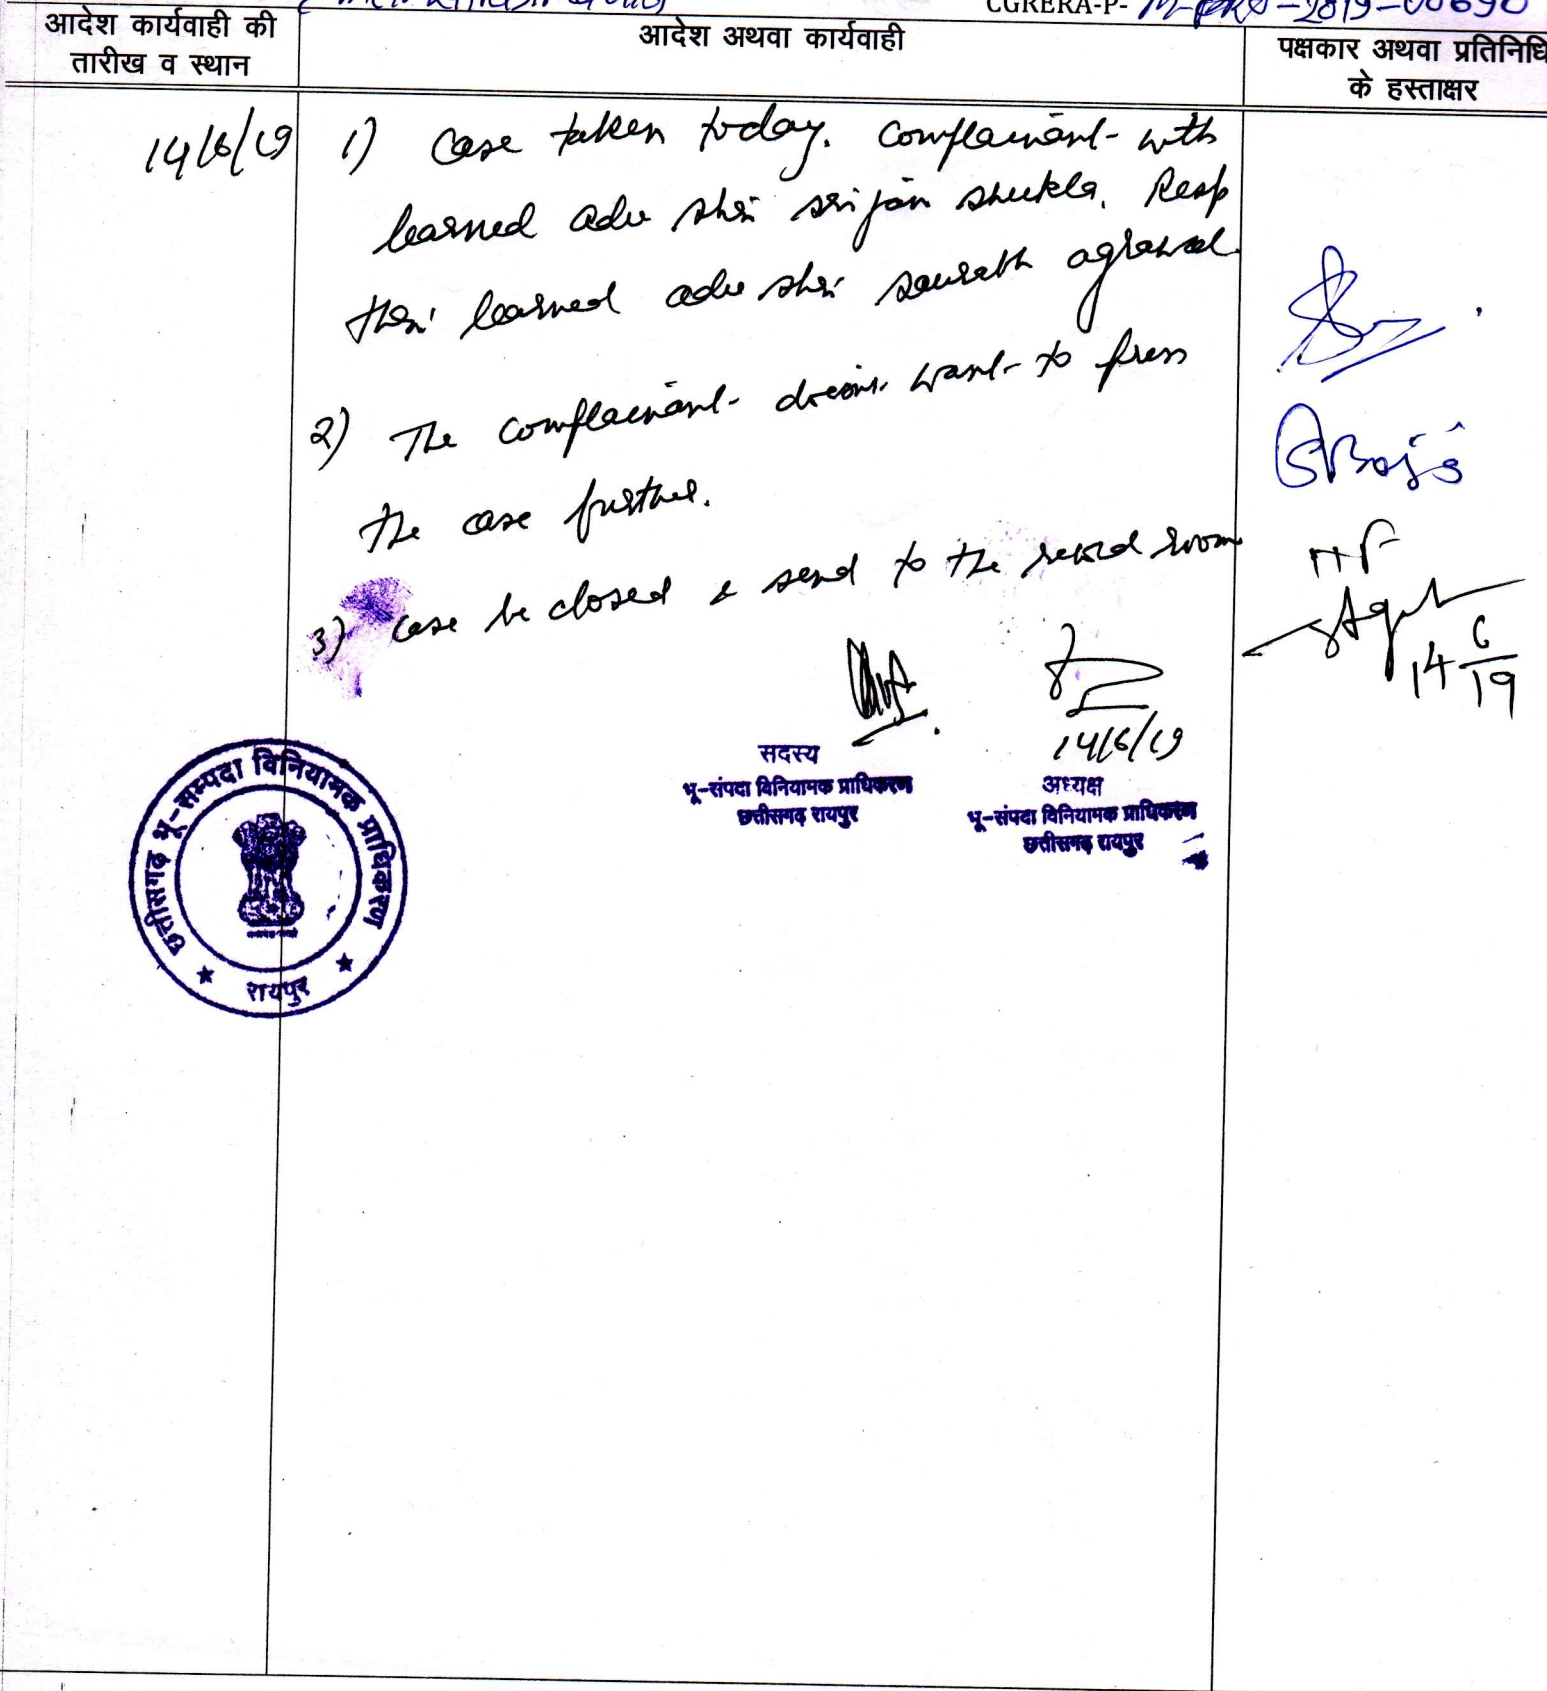 CGRERA-P- M-PRO-2019-00690
आदेश कार्यवाही की
तारीख व स्थान
आदेश अथवा कार्यवाही
पक्षकार अथवा प्रतिनिधि
के हस्ताक्षर
14/6/19
1) Case taken today. Complainant with
learned adv shri srijan shukla. Resp
thr: learned adv shri saurabh agrawal
2) The complainant want to press
the case further.
3) Case be closed & send to the record room
14/6/19
14 6/19
सदस्य
भू-संपदा विनियामक प्राधिकरण
छत्तीसगढ़ रायपुर
अध्यक्ष
भू-संपदा विनियामक प्राधिकरण
छत्तीसगढ़ रायपुर
छत्तीसगढ़ भू-सम्पदा विनियामक प्राधिकरण
रायपुर